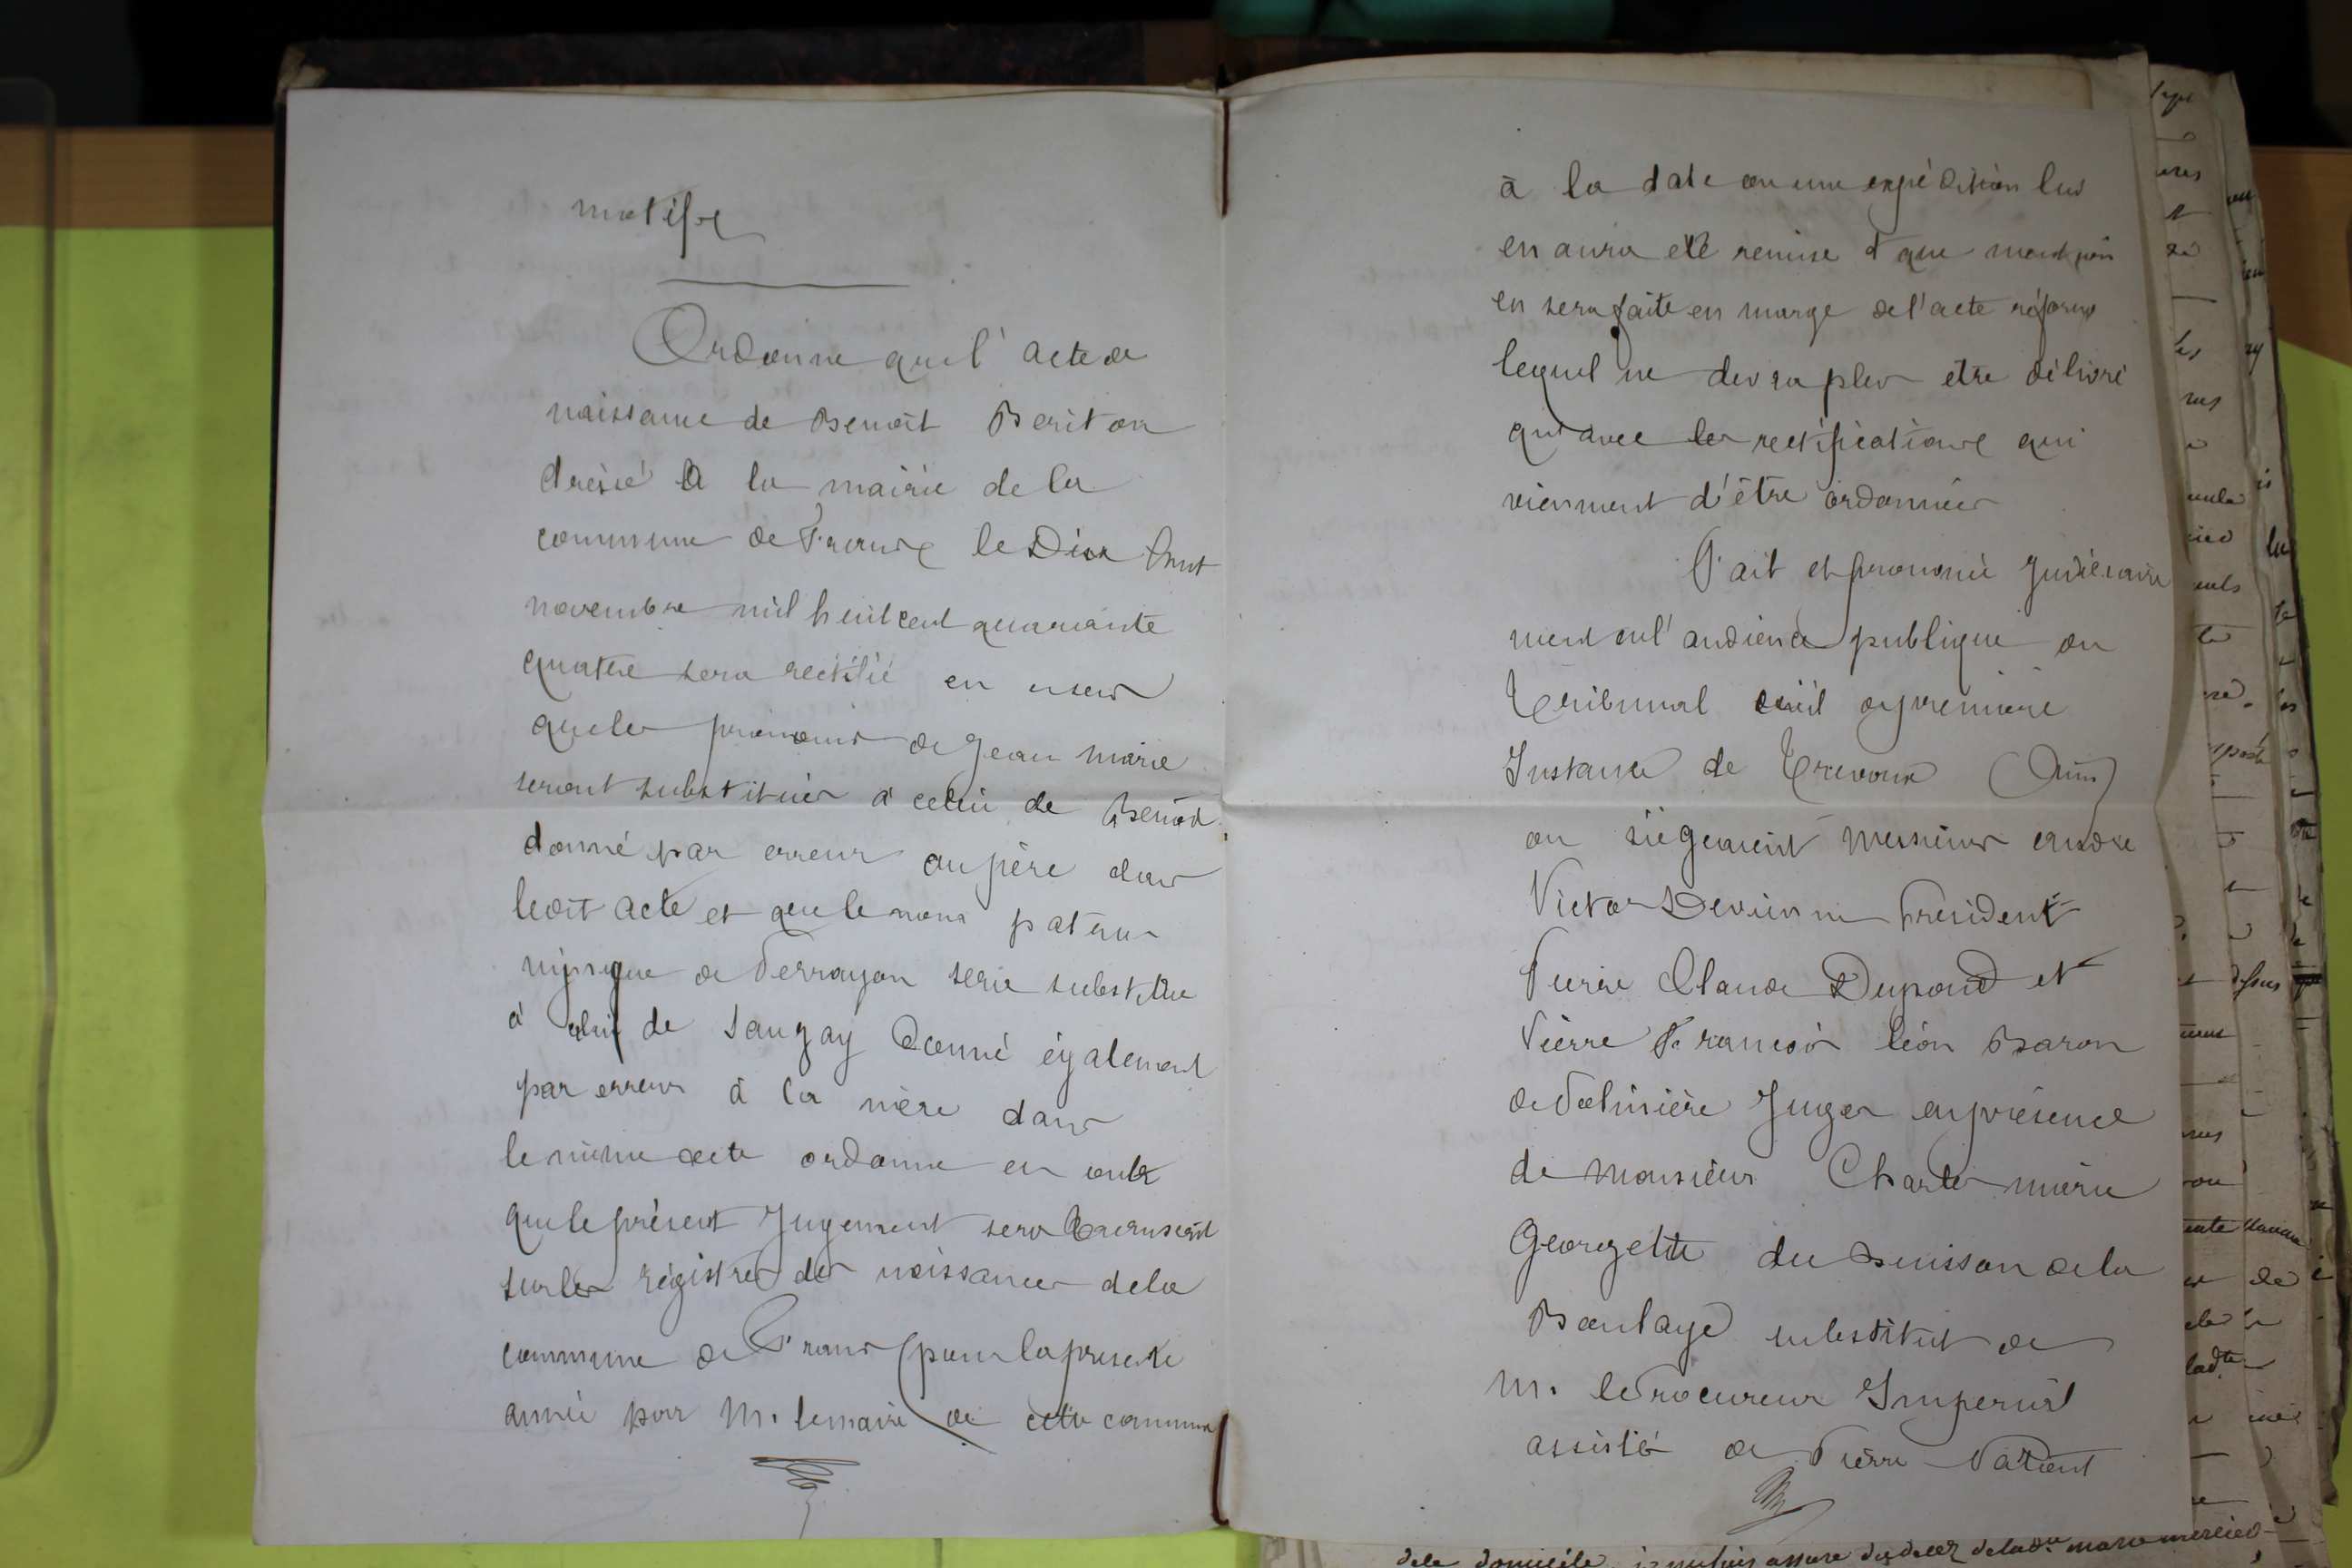 motifs
Ordonne que l'acte de
naissance de Benoît Beriton
dressé à la mairie de la
commune de Frans le Dix huit
novembre mil huit cent quarante
quatre sera rectifié en ce sens
que les prénoms de Jean Marie
seront substitués à celui de Benoît
donné par erreur au père dans
ledit acte et que le nom patro
nymique de Perrayon sera substitué
à celui de Sauzay donné également
par erreur à la mère dans
le même acte ordonne en outre
que le présent Jugement sera transcrit
sur les régistres des naissances de la
commune de Frans pour la présente
année par M. le maire de cette commune
à la date ou une expédition lui
en aura été remise et que mention
en sera faite en marge de l'acte réformé
lequel ne devra plus etre délivré
qu'avec les rectifications qui
viennent d'être ordonnées
Fait et prononcé Judiciaire
ment en l'audience publique du
Tribunal civil de première
Instance de Trevoux (Ain)
ou siégeaient Messieurs André
Victor Devienne Président
Pierre Claude Dupond et
Pierre François léon Baron
de Polinière Juges en présence
de Monsieur Charles Marie
Georgette du Buisson de la
Boulaye substitut de
M. le Procureur Impérial
assisté de Pierre Patient
dele domicile